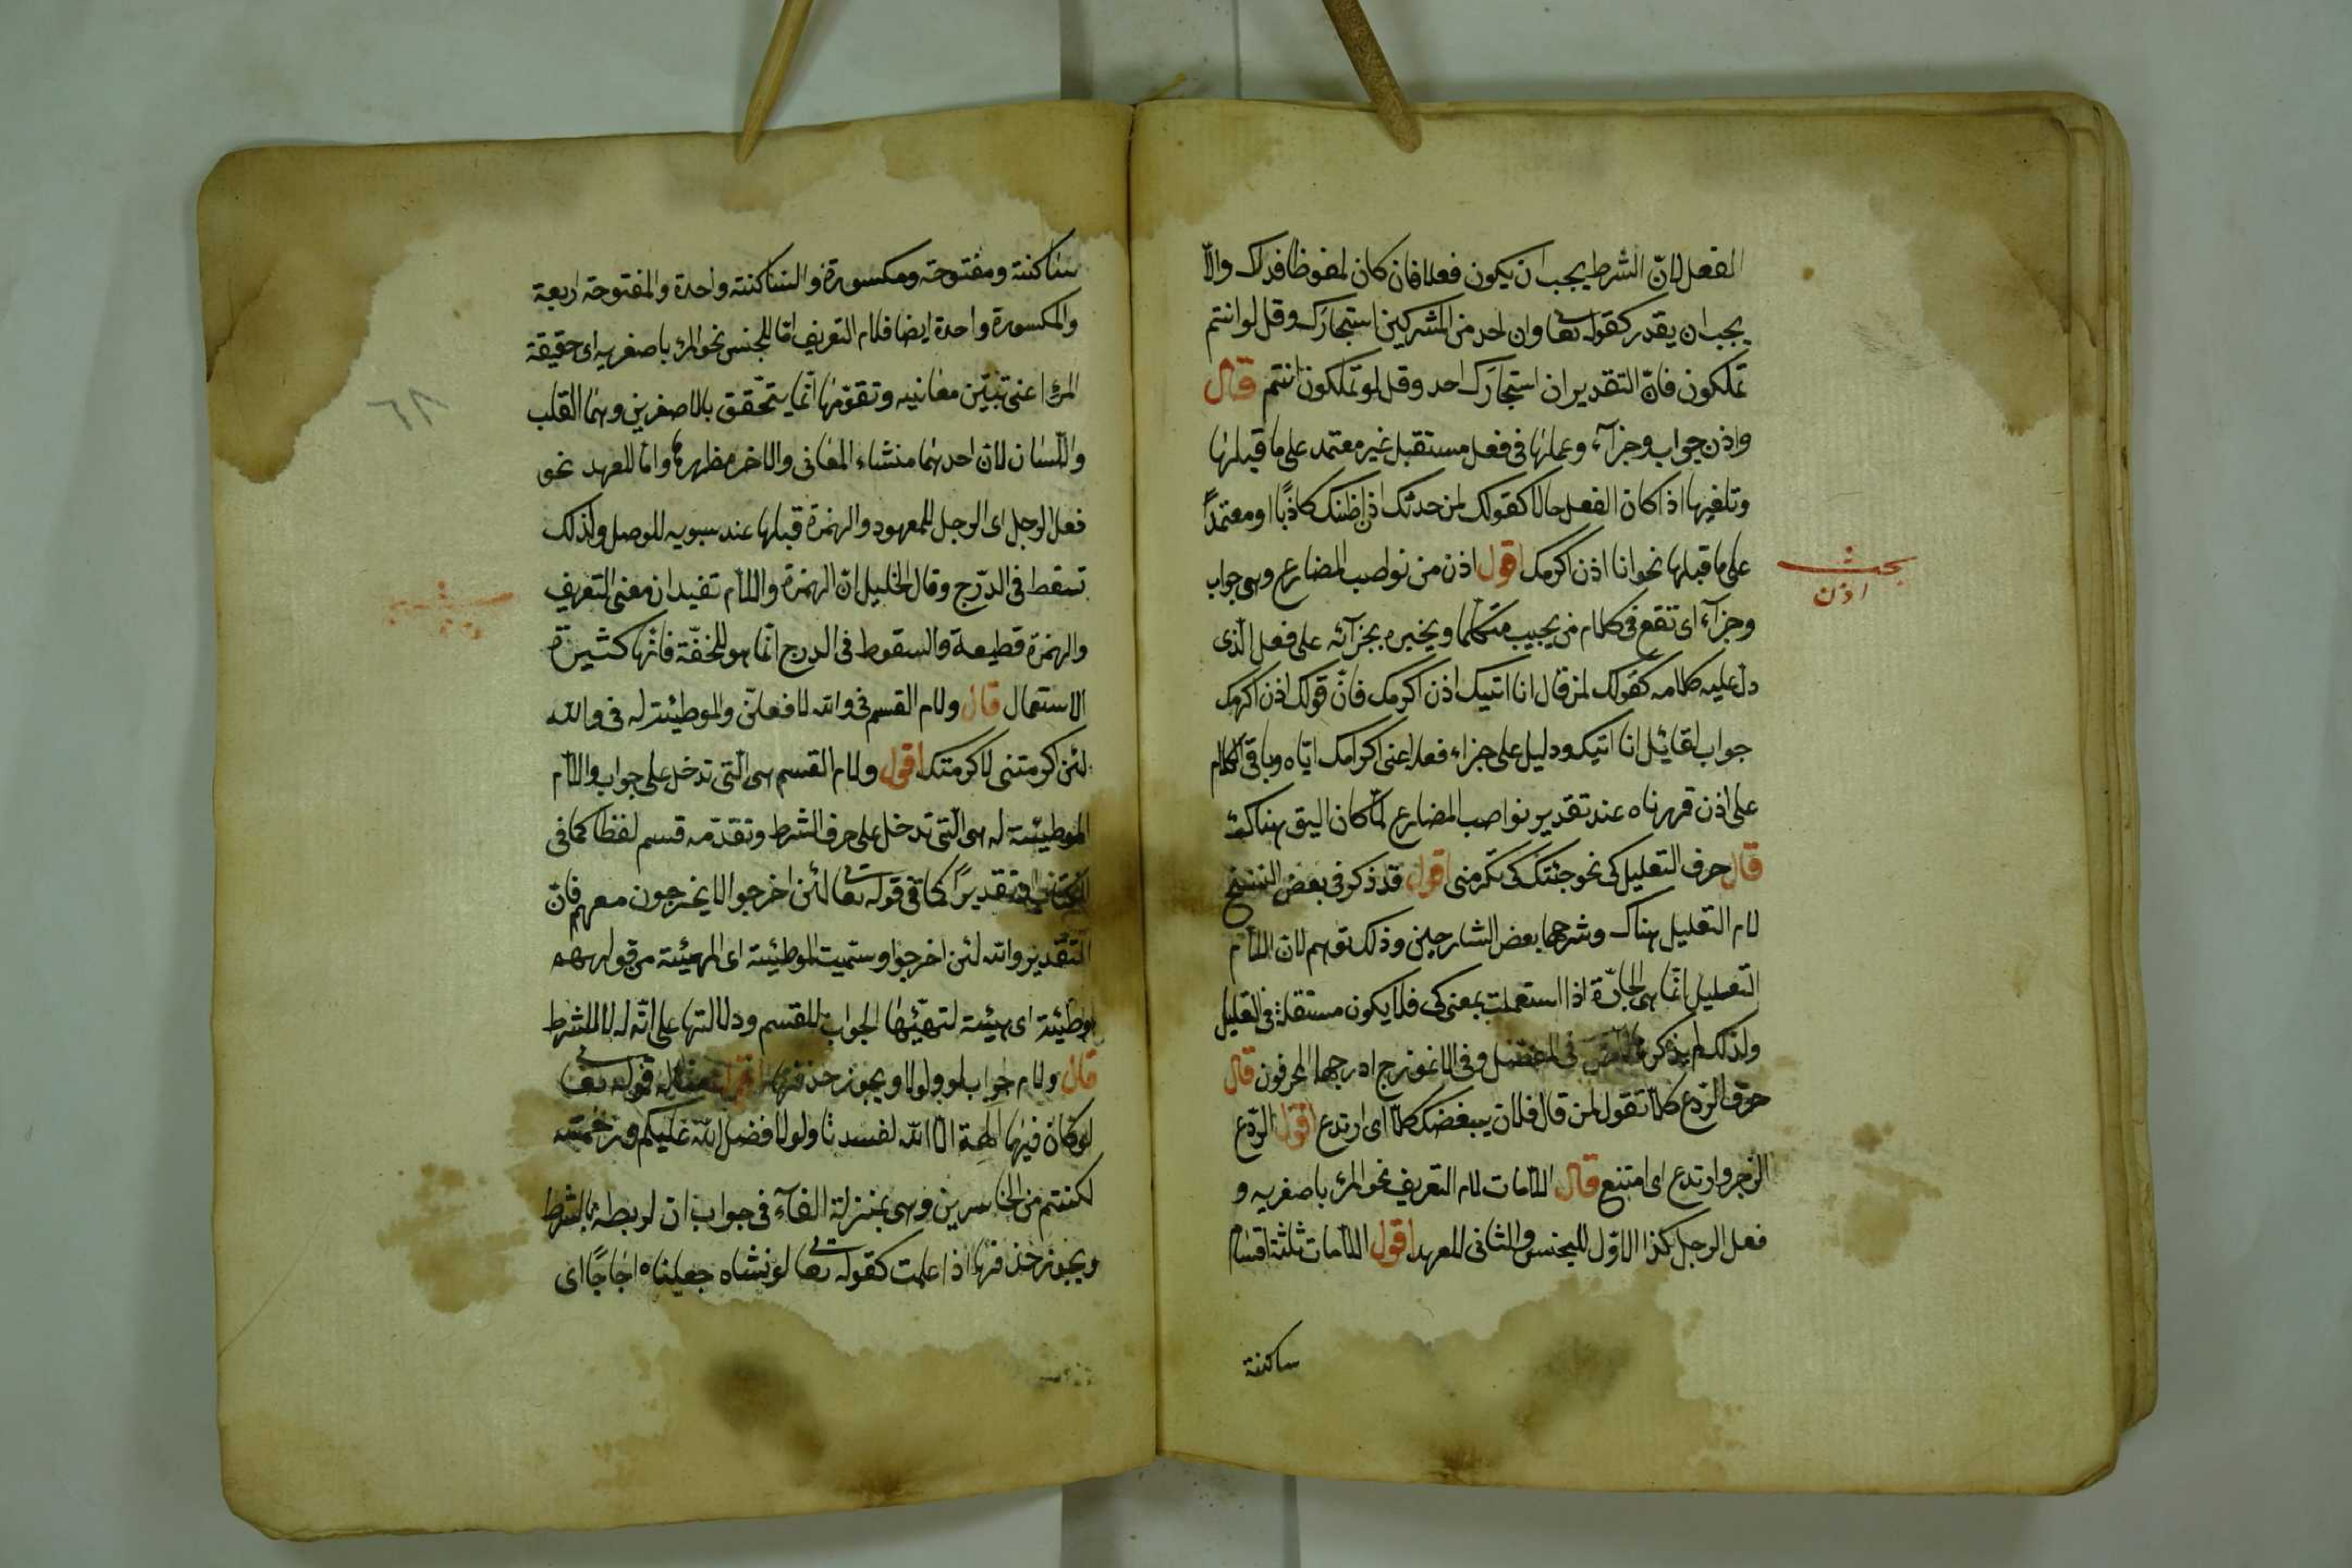 الفعل لانّ الشرط يجب ان يكون فعلا فان كان ملفوظا فذاك والاّ
يجب ان يقدر كقوله تعا وان احد من المشركين استجارك وقل لو انتم
تملكون فانّ التقدير ان استجارك احد وقل لو تملكون انتم قال
واذن جواب وجزآء وعملها فى فعل مستقبل غير معتمد على ما قبلها
وتلغيها اذا كان الفعل حالا كقولك لمن حدثك اذن اظنك كاذبًا او معتمدًا
على ما قبلها نحو انا اذن اكرمك اقول اذن من نواصب المضارع وهى جواب
بحث
اذن
وجزآء اى تقع فى كلام من يجيب متكلما ويخبره بجزآئه على فعل الّذى
دل عليه كلامه كقولك لمن قال انا اتيك اذن اكرمك فانّ قولك اذن اكرمك
جواب لقائل انا اتيك ودليل على جزاء فعله اعنى اكرامك ايّاه وباقى الكلام
على اذن قررناه عند تقدير نواصب المضارع لمّا كان اليق هناك
قال حرف التعليل كى نحو جئتك كى تكرمنى اقول قد ذكر فى بعض النسخ
لام التعليل هناك وشرحها بعض الشارحين وذلك توهم لان اللام
التعليل انّما هى الجارّة اذا استعملت بمعنى كى فلا يكون مستقلة فى التعليل
ولذلك لم يذكر فى المفصل وفى الانموذج ادرجها المحرفون قال
حرف الرّدع كلاّ تقول لمن قال فلان يبغضك كلاّ اى ارتدع اقول الرّدع
الزجر وارتدع اى امتنع قال اللامات لام التعريف نحو المرء باصغريه و
فعل الرجل كذا الاوّل للجنس والثانى للعهد اقول اللامات ثلثة اقسام
ساكنة
ساكنة ومفتوحة ومكسورة والساكنة واحدة والمفتوحة اربعة
والمكسورة واحدة ايضا فلام التعريف امّا للجنس نحو المرء باصغريه اى حقيقة
المرء اعنى تبيّن معانيه وتقوّمها انّما يتحّقق بالاصغرين وهما القلب
٦٨
واللّسان لانّ احدهما منشاء المعانى والاخر مظهرها وامّا للعهد نحو
فعل الرجل اى الرجل المعهود والهمزة قبلها عند سبويه للوصل ولذلك
تسقط فى الدّرج وقال الخليل انّ الهمزة واللام تفيدان معنى التعريف
والهمزة قطيعة والسقوط فى الدرج انّما هو للخفّة فانّها كثيرة
الاستعمال قال ولام القسم فى والله لافعلنّ والموطئة له فى والله
لئن اكرمتنى لاكرمتك اقول ولام القسم هى الّتى تدخل على جواب واللام
الموطئة له هى الّتى تدخل على حرف الشرط وتقدّمه قسم لفظا كما فى
الكتاب او تقديرًا كما فى قوله تعا لئن اخرجوا لا يخرجون معهم فانّ
التّقدير والله لئن اخرجوا وسمّيت الموطئة اى المهيئة من قولهم
موطئة اى هيئة لتهيّئها الجواب للقسم ودلالتها على انّه له لا للشرط
قال ولام جواب لو ولولا ويجوز حذفها اقول مثاله قوله تعا
لو كان فيهما آلهة الاّ الله لفسدتا ولولا فضل الله عليكم ورحمته
لكنتم من الخاسرين وهى بمنزلة الفآء فى جواب ان لربطه بالشرط
ويجوز حذفها اذا علمت كقوله تعا لو نشاء جعلناه اجاجًا اى